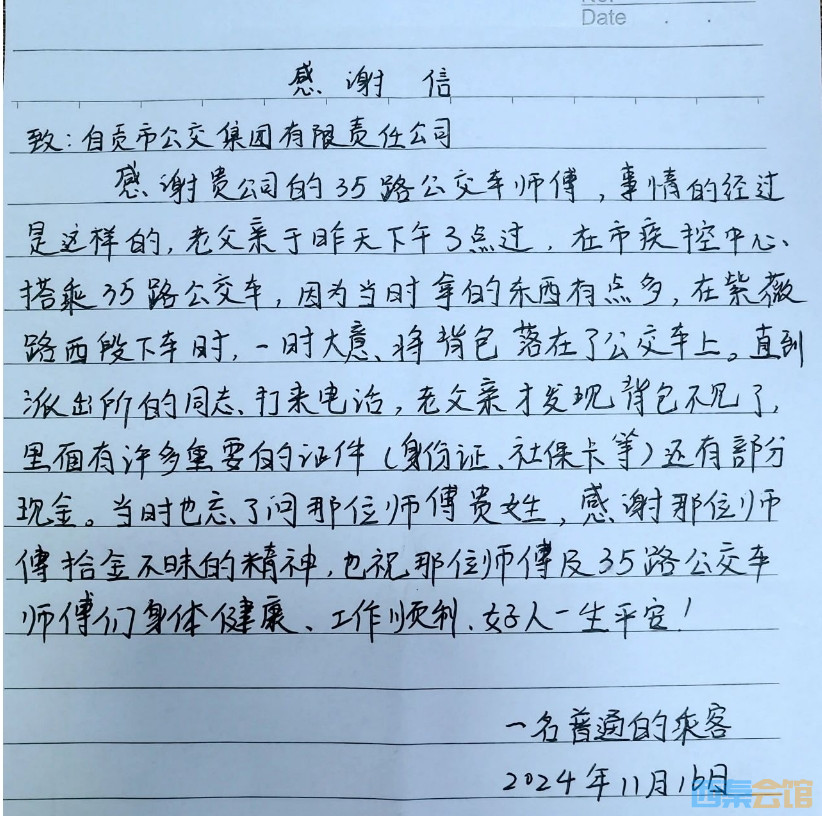 Date . .
感谢信
致：自贡市公交集团有限责任公司
感谢贵公司的35路公交车师傅，事情的经过
是这样的，老父亲于昨天下午3点过，在市疾控中心、
搭乘35路公交车，因为当时拿的东西有点多，在紫薇
路西段下车时，一时大意、将背包落在了公交车上。直到
派出所的同志、打来电话，老父亲才发现背包不见了，
里面有许多重要的证件（身份证、社保卡等）还有部分
现金。当时也忘了问那位师傅贵姓，感谢那位师
傅拾金不昧的精神，也祝那位师傅及35路公交车
师傅们身体健康、工作顺利、好人一生平安！
一名普通的乘客
2024年11月16日
西秦会馆